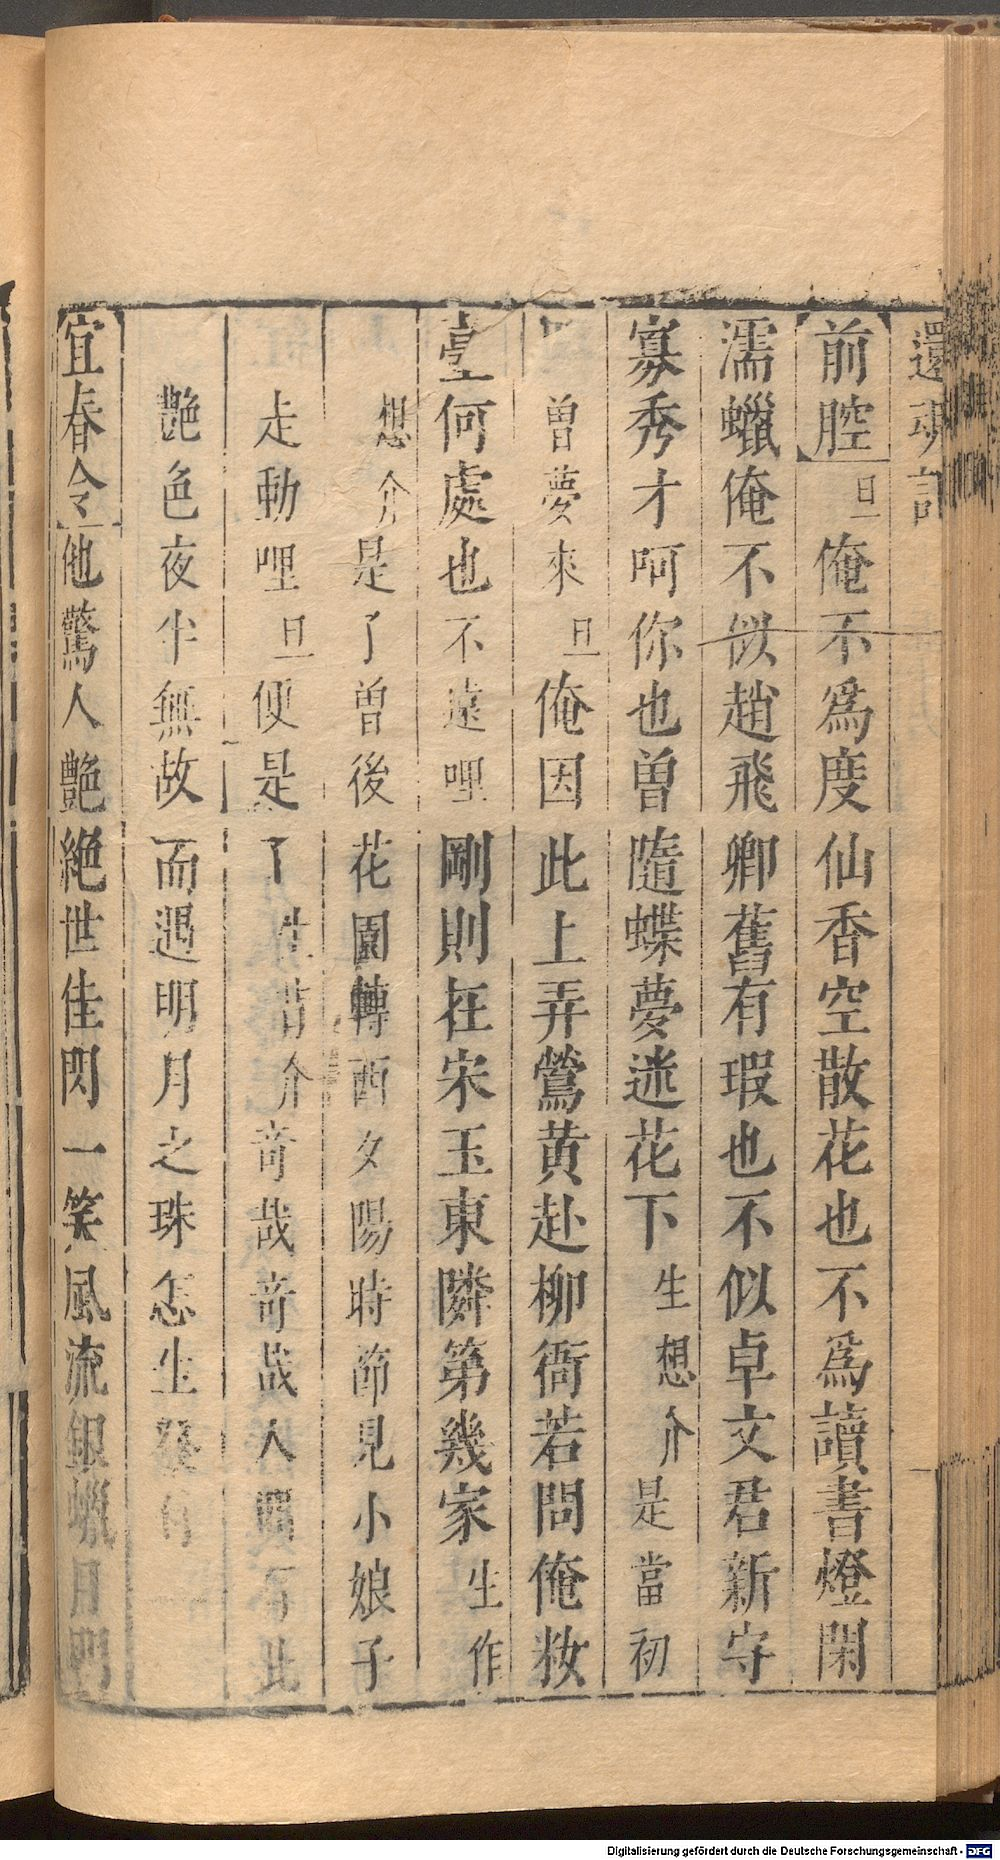 還魂記
前腔 旦 俺不爲度仙香空散花也不爲讀書燈閑
濡蠟俺不似趙飛卿舊有瑕也不似卓文君新守
寡秀才呵你也曾隨蝶夢迷花下 生想介 是當初
曾夢來 旦 俺因此上弄鶯黃赴柳衙若問俺妝
臺何處也不遠哩剛則在宋玉東隣第幾家 生作
想介 是了曾後花園轉西夕陽時節見小娘子
走動哩 旦 便是了 生 介 奇哉奇哉人間有此
艷色夜半無故而遇明月之珠怎生發付
宜春令 他驚人艷絕世佳閃一笑風流銀蠟月明
Digitalisierung gefördert durch die Deutsche Forschungsgemeinschaft - DFG